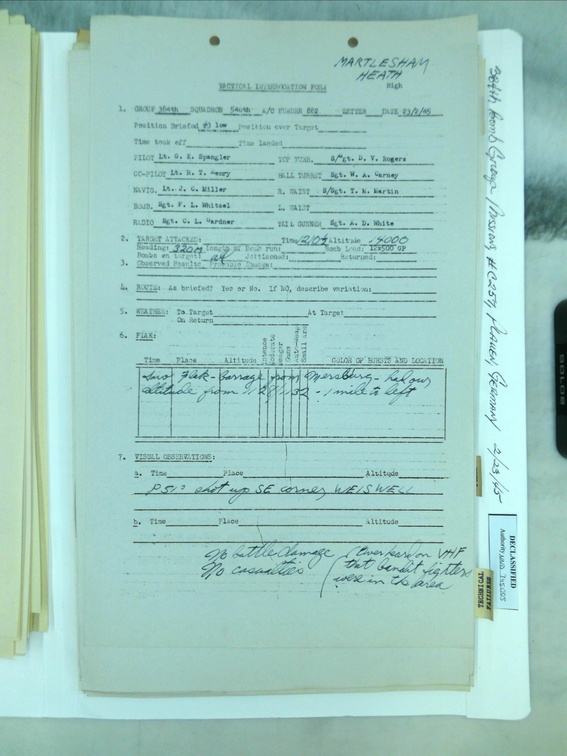 MARTLESHAM
HEATH
TACTICAL INTERROGATION FORM
High
1. GROUP 384th SQUADRON 546th A/C NUMBER 882 LETTER DATE 23/2/45
Position Briefed #3 low Position over Target
Time took off Time landed
PILOT Lt. G. E. Spangler TOP TURR. S/Sgt. D. V. Rogers
CO-PILOT Lt. R. T. Henry BALL TURRET Sgt. W. A. Carney
NAVIG. Lt. J. C. Miller R. WAIST S/Sgt. T. N. Martin
BOMB. Sgt. F. L. Whitsel L. WAIST
RADIO Sgt. C. L. Gardner TAIL GUNNER Sgt. A. D. White
2. TARGET ATTACKED: Time 1204 Altitude
Heading: 330M Length of Bomb run: Bomb Load: 12x500 GP
Bombs on target: all Jettisoned: Returned:
3. Observed Results
4. ROUTE: As briefed? Yes or No. If NO, describe variation:
5. WEATHER: To Target At Target
On Return
6. FLAK:
Intense
Moderate
Meager
Small Arms
Time Place Altitude COLOR OF BURSTS AND LOCATION
Flak - barrage from Mersburg - half our
altitude from 1128 1132 - 1 mile to left
7. VISUAL OBSERVATIONS:
a. Time Place Altitude
P51's shot up SE corner WEISWELL
b. Time Place Altitude
No battle damage
No casualties
Overheard on VHF
that bandit fighters
were in the area
384th Bomb Group / Mission # 257, Plauen, Germany 2/23/45
DECLASSIFIED
Authority
TECHNICAL
FAILURES